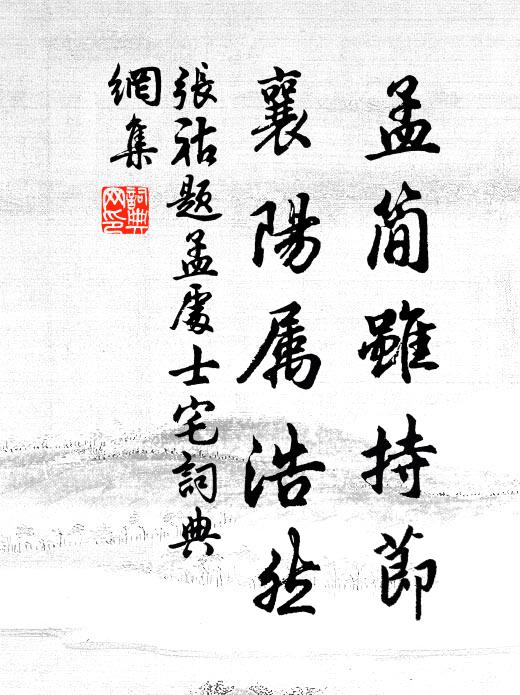 孟简雖持節
襄陽属浩然
張祜題孟處士宅詞典
網集
詞典
网印